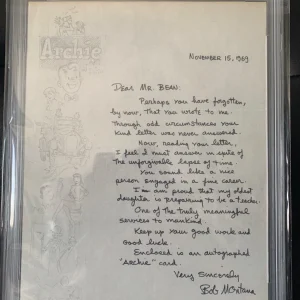 Archie
NOVEMBER 15, 1969
DEAR MR. BEAN:
Perhaps you have forgotten,
by now, that you wrote to me.
Through odd circumstances your
kind letter was never answered.
Now, reading your letter,
I feel I must answer in spite of
the unforgivable lapse of time.
You sound like a nice
person engaged in a fine career.
I am proud that my oldest
daughter is preparing to be a teacher.
One of the truly meaningful
services to mankind.
Keep up your good work and
good luck.
Enclosed is an autographed
"Archie" card.
Very Sincerely
Bob Montana